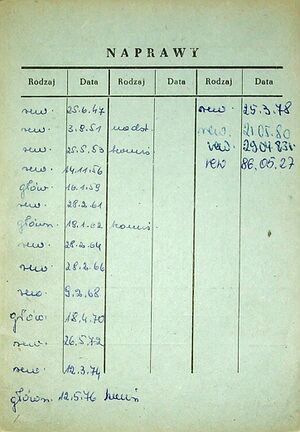 NAPRAWY
Rodzaj Data Rodzaj Data Rodzaj Data
rew. 25.6.47 rew. 25.3.78
rew. 3.8.51 nadst. rew. 21.05.80
rew. 25.5.53 29.04.83r.
rew. 14.11.56 rew 86.05.27
główn. 16.1.59
rew. 28.2.61
główn. 19.1.62
rew. 28.2.64
rew. 28.2.66
rew. 9.2.68
główn. 18.4.70
rew. 26.5.72
rew. 12.3.74
główn. 12.5.76